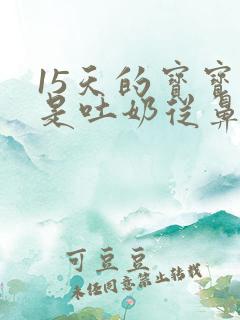 15天的宝宝
是吐奶从鼻
可豆豆
未经同意禁止转载